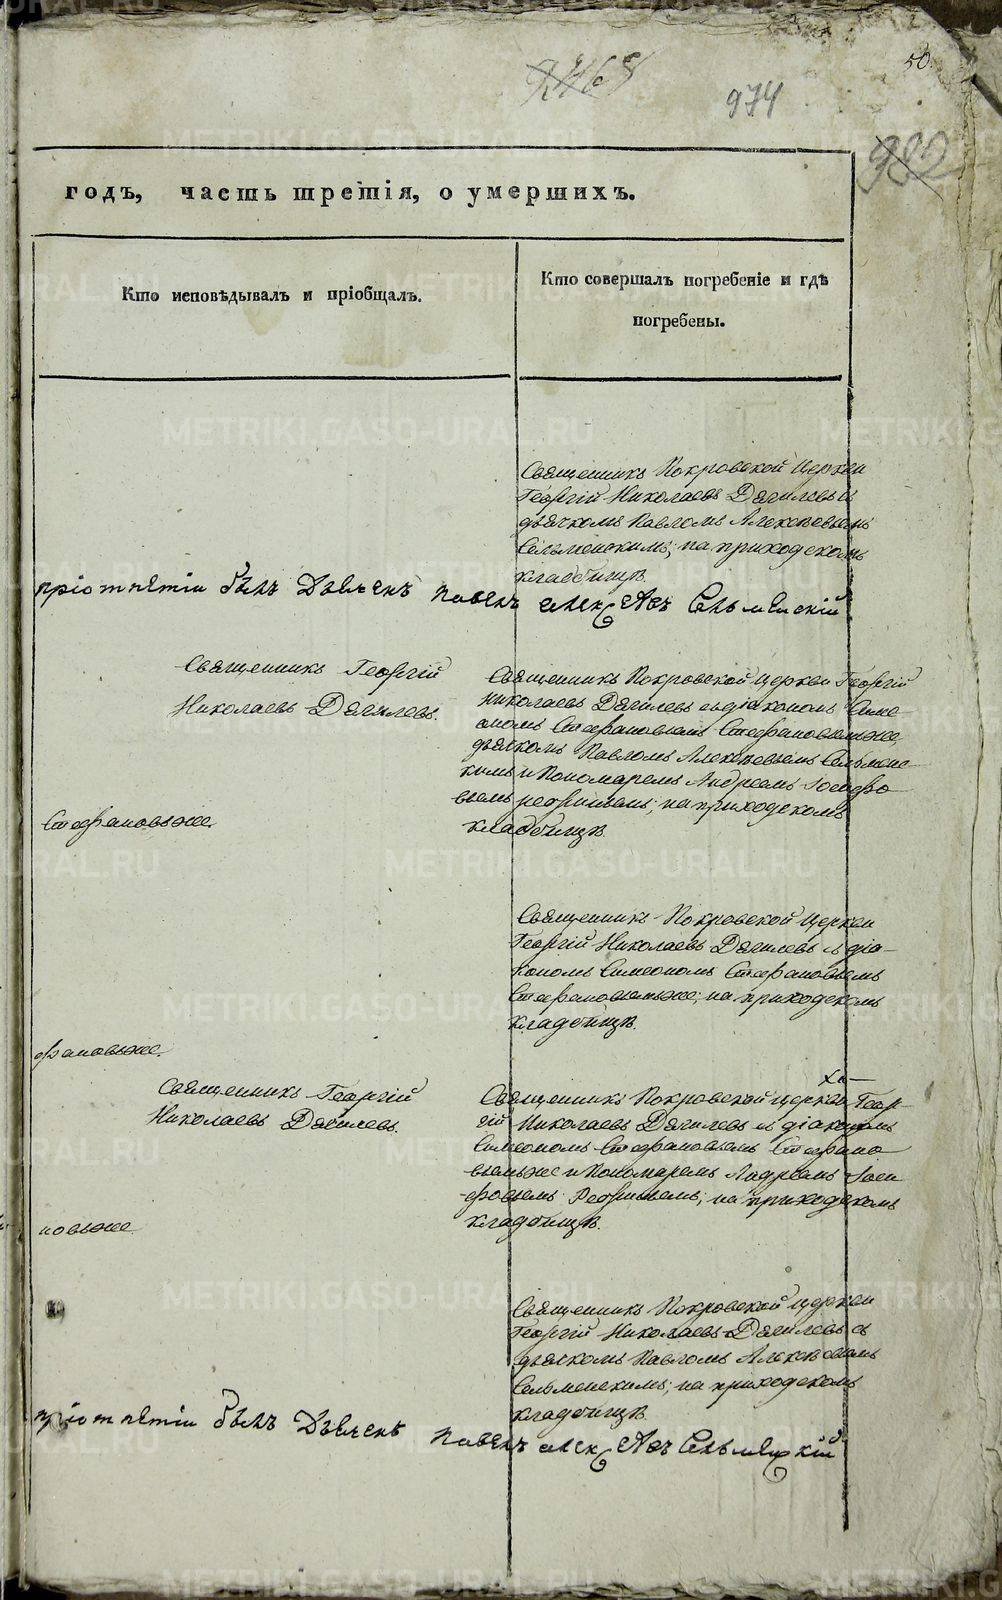 50.
974
982
годъ, часть третія, о умершихъ.
Кто исповѣдывалъ и пріобщалъ.
Кто совершалъ погребеніе и гдѣ
погребены.
Священникъ Покровской Церкви
Георгій Николаевъ Дягилевъ съ
дьячкомъ Павломъ Алексѣевымъ
Сельменскимъ; на приходскомъ
кладбищѣ.
при отпѣтіи былъ Дьячекъ Павелъ Сельменскій
Священникъ Георгій
Николаевъ Дягилевъ.
Священникъ Покровской Церкви Георгій
Николаевъ Дягилевъ съ діакономъ Симе-
ономъ Стефановымъ Стефановымъ же,
дьячкомъ Павломъ Алексѣевымъ Сельменс-
кимъ и Пономаремъ Андреемъ Іосифо
вымъ на приходскомъ
кладбищѣ.
Стефановымъ же.
Священникъ Покровской Церкви
Георгій Николаевъ Дягилевъ съ діа-
кономъ Симеономъ Стефановымъ
Стефановымъ же; на приходскомъ
кладбищѣ.
Священникъ Георгій
Николаевъ Дягилевъ.
Священникъ Покровской церкви Геор-
гій Николаевъ Дягилевъ съ діакономъ
Симеономъ Стефановымъ Стефано
вымъ же и Пономаремъ Андреемъ Іоси
фовымъ на приходскомъ
кладбищѣ.
Священникъ Покровской церкви
Георгій Николаевъ Дягилевъ съ
дьячкомъ Павломъ Алексѣевымъ
Сельменскимъ; на приходскомъ
кладбищѣ
при отпѣтіи былъ Дьячекъ Павелъ
METRIKI.GASO-URAL.RU